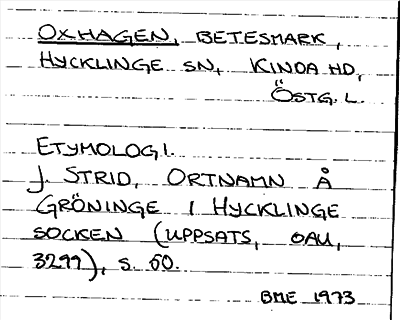 OXHAGEN, BETESMARK,
HYCKLINGE SN, KINDA HD,
ÖSTG. L.
ETYMOLOGI.
J. STRID, ORTNAMN Å
GRÖNINGE I HYCKLINGE
SOCKEN (UPPSATS, OAU,
3299), S. 50.
BME 1973